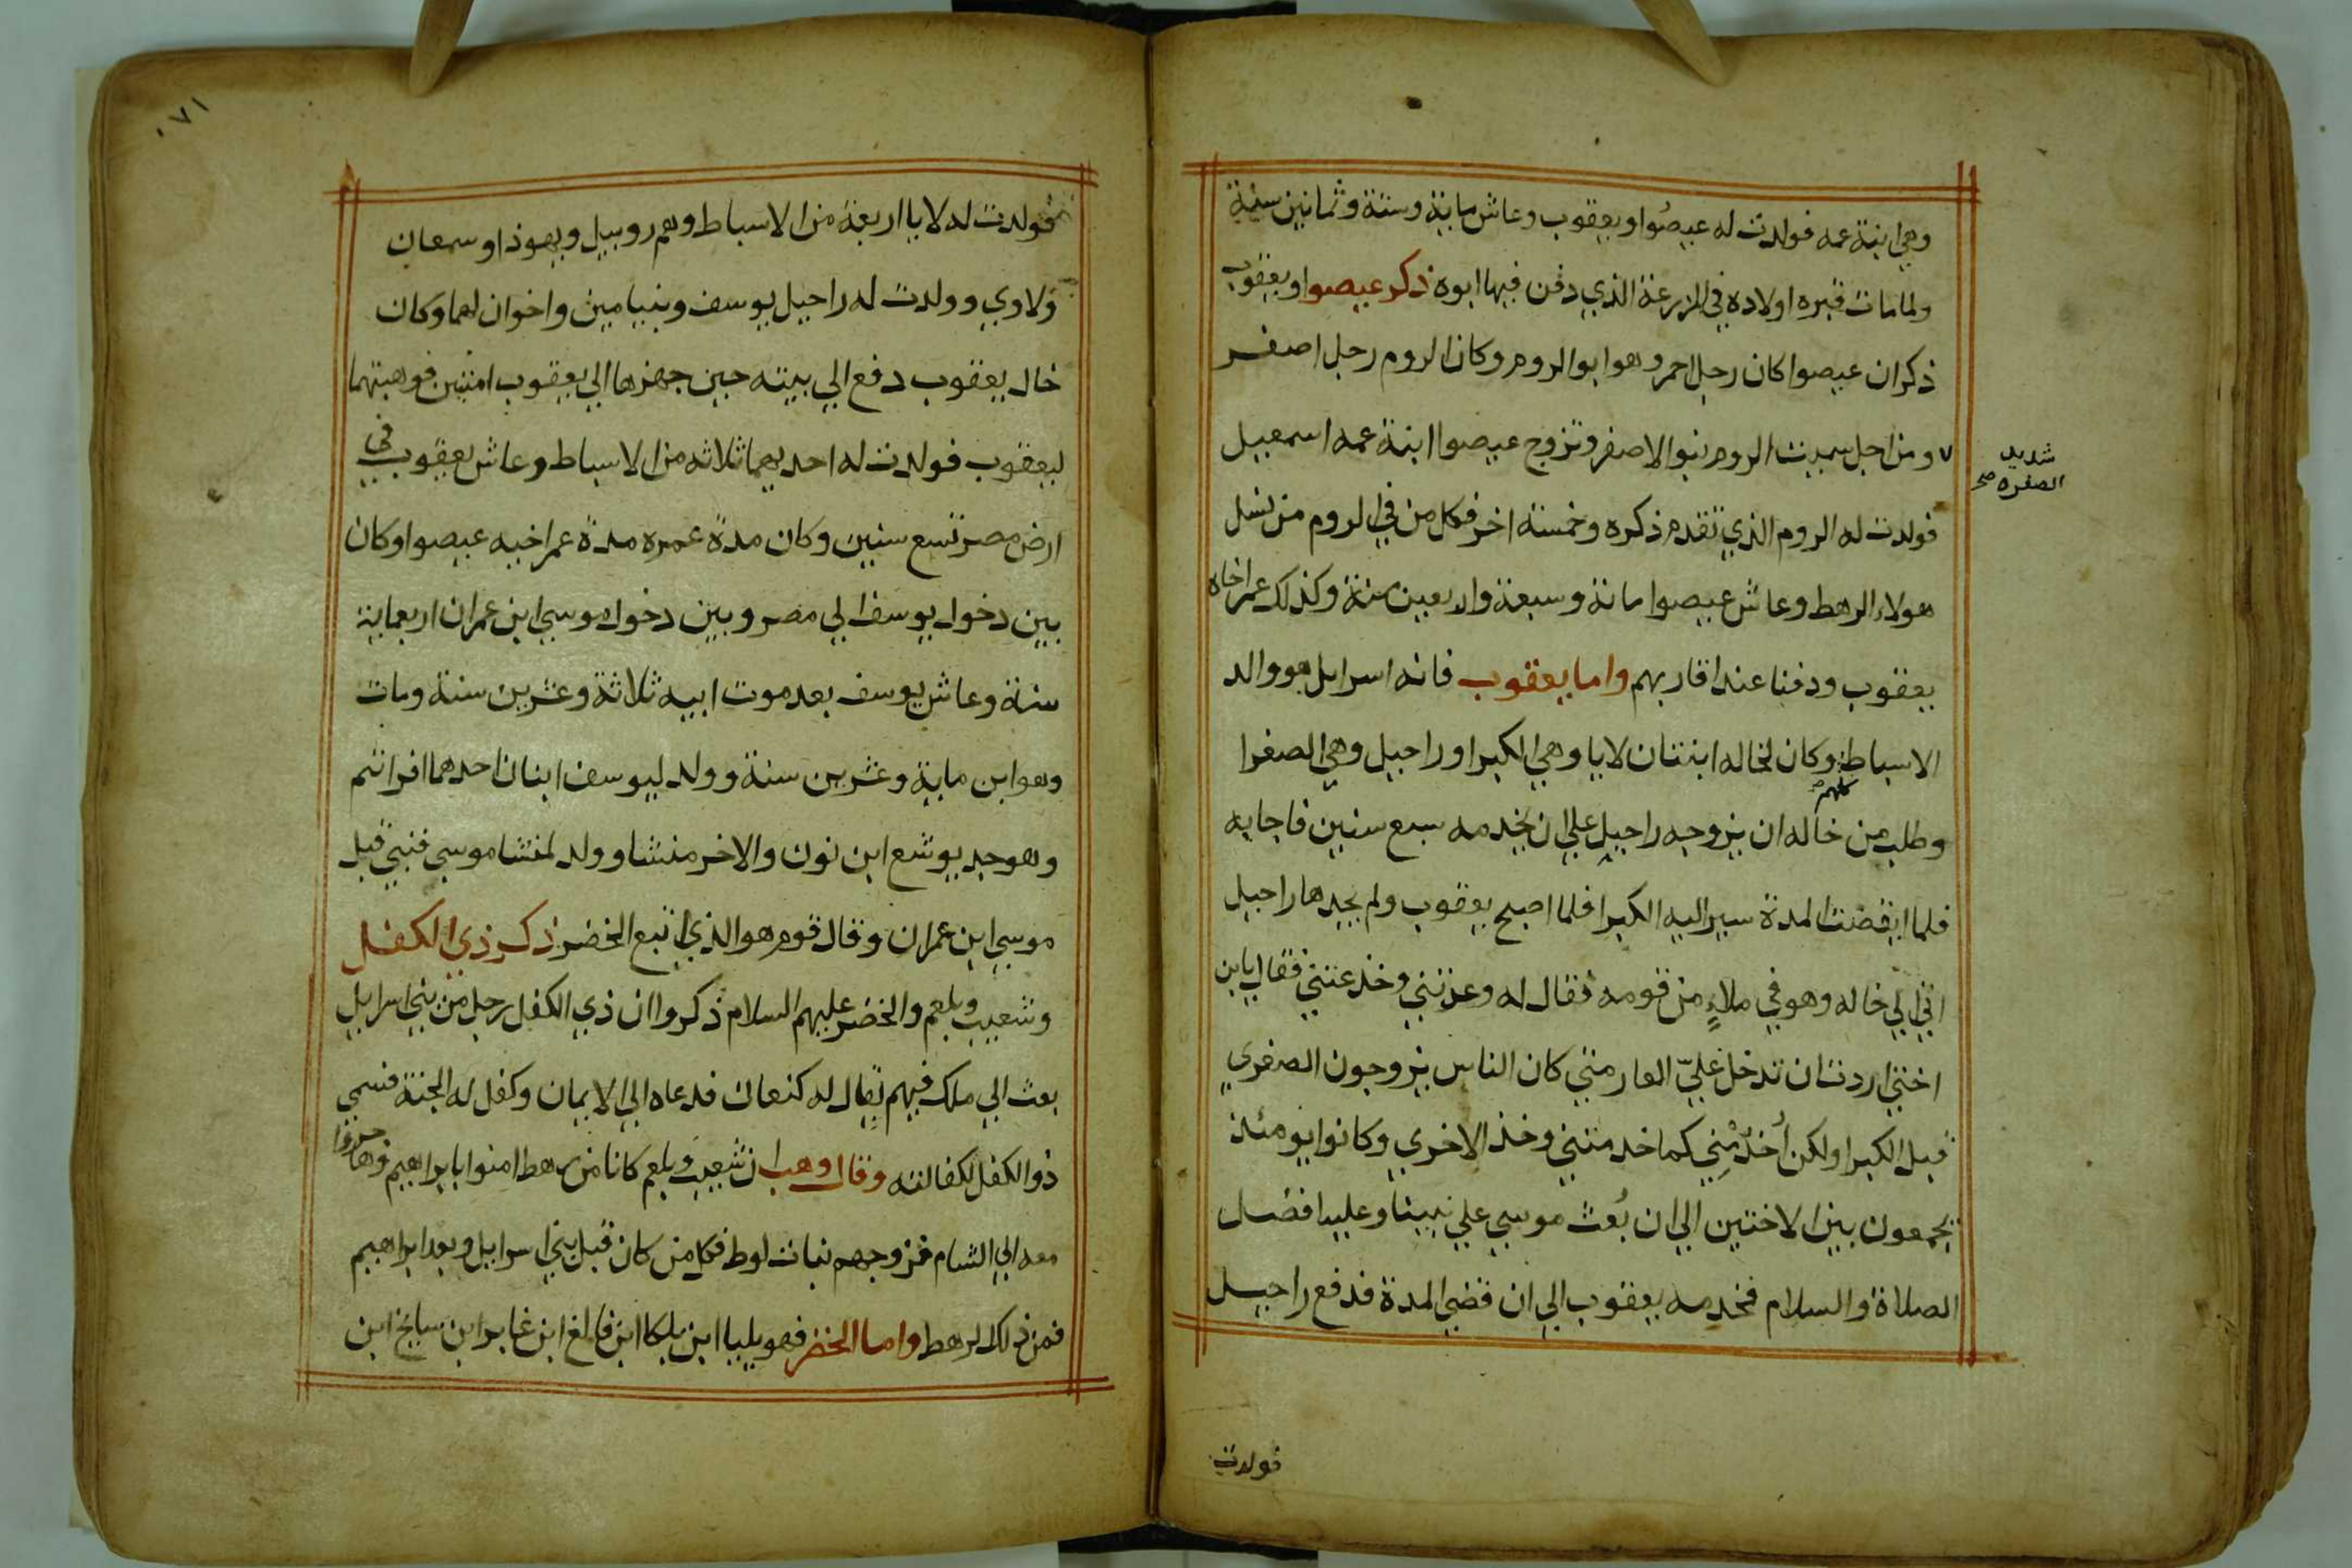 وهي ابنة عمه فولدت له عيصُوا ويعقوب وعاش ماية وستة وثمانين سنة
ولما مات قبره اولاده في المزرعة الذي دفن فيها ابوه ذكر عيصوا ويعقوب
ذكر ان عيصوا كان رجل احمر وهو ابو الروم وكان الروم رجل اصفر
٧ ومن اجل سميت الروم بنو الاصفر وتزوج عيصوا ابنة عمه اسمعيل
شديد
الصفره صح
فولدت له الروم الذي تقدم ذكره وخمسة اخر فكل من في الروم من نسل
هولاء الرهط وعاش عيصوا مائة وسبعة واربعين سنة وكذلك عمر اخاه
يعقوب ودفنا عند اقاربهم واما يعقوب فانه اسرايل هو والد
الاسباط وكان لخاله ابنتان لايا وهي الكبرا وراحيل وهي الصغرا
كلهم
وطلب من خاله ان يزوجه راحيل علي ان يخدمه سبع سنين فاجابه
فلما انقضت المدة سير اليه الكبرا فلما اصبح يعقوب ولم يجدها راحيل
اتي الي خاله وهو في ملاءٍ من قومه فقال له وعزتني وخدعتني فقال يا بن
اختي اردت ان تدخل عليّ العار متي كان الناس يزوجون الصغري
قبل الكبرا ولكن أخدُمْنِي كما خدمتني وخذ الاخري وكانوا يومئذ
يجمعون بين الاختين الي ان بُعث موسي علي نبينا وعليه افضل
الصلاة والسلام فخدمه يعقوب الي ان قضي المدة فدفع راحيل
فولدت
٧١
فولدت له لايا اربعة من الاسباط وهم روبيل ويهوذا وسمعان
ولاوي وولدت له راحيل يوسف وبنيامين واخوان لهما وكان
خال يعقوب دفع الي بيته حين جهزها الي يعقوب امتين فوهبتهما
ليعقوب فولدت له احديهما ثلاثه من الاسباط وعاش يعقوب في
ارض مصر تسع سنين وكان مدة عمره مدة عمر اخيه عيصوا وكان
بين دخول يوسف الي مصر وبين دخول موسي ابن عمران اربعماية
سنة وعاش يوسف بعد موت ابيه ثلاثة وعشرين سنة ومات
وهو ابن ماية وعشرين سنة وولد ليوسف ابنان احدهما افراثم
وهو جد يوشع ابن نون والاخر منشا وولد لمنشا موسي فنبئ قبل
موسي ابن عمران وقال قوم هو الذي اتبع الخضر ذكر ذي الكفل
وشعيب وبلعم والخضر عليهم السلام ذكروا ان ذي الكفل رجل من بني اسرايل
بعث الي ملك فيهم يقال له كنعان فدعاه الي الايمان وكفل له الجنة فسمي
ذو الكفل لكفالته وقال وهب ان شعيب وبلعم كانا من رهط امنوا بابراهيم وهاجروا
معه الي الشام فزوجهم بنات لوط فكل من كان قبل بني اسرايل وبعد ابراهيم
فمن ذلك الرهط واما الخضر فهو بليا ابن بلكا ابن فالغ ابن غابر ابن سالخ ابن